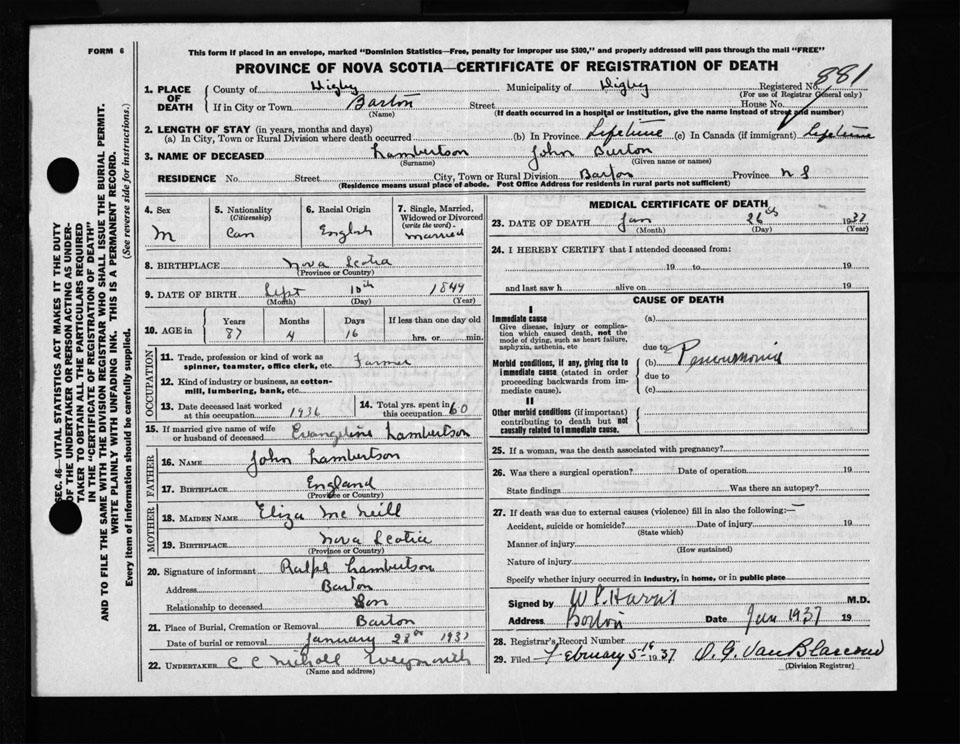 FORM 6
This form if placed in an envelope, marked "Dominion Statistics—Free, penalty for improper use $300," and properly addressed will pass through the mail "FREE"
PROVINCE OF NOVA SCOTIA—CERTIFICATE OF REGISTRATION OF DEATH
SEC. 46—VITAL STATISTICS ACT MAKES IT THE DUTY
OF THE UNDERTAKER OR PERSON ACTING AS UNDER-
TAKER TO OBTAIN ALL THE PARTICULARS REQUIRED
IN THE "CERTIFICATE OF REGISTRATION OF DEATH"
AND TO FILE THE SAME WITH THE DIVISION REGISTRAR WHO SHALL ISSUE THE BURIAL PERMIT.
WRITE PLAINLY WITH UNFADING INK. THIS IS A PERMANENT RECORD.
Every item of information should be carefully supplied. (See reverse side for instructions.)
1. PLACE OF DEATH County of Digby Municipality of Digby Registered No. 881
(For use of Registrar General only)
If in City or Town Barton Street House No.
(Name) (If death occurred in a hospital or institution, give the name instead of street and number)
2. LENGTH OF STAY (in years, months and days)
(a) In City, Town or Rural Division where death occurred (b) In Province Lifetime (c) In Canada (if immigrant) Lifetime
3. NAME OF DECEASED Lambertson John Burton
(Surname) (Given name or names)
RESIDENCE No. Street City, Town or Rural Division Barton Province N S
(Residence means usual place of abode. Post Office Address for residents in rural parts not sufficient)
4. Sex M
5. Nationality (Citizenship) Can
6. Racial Origin English
7. Single, Married, Widowed or Divorced (write the word) - married
8. BIRTHPLACE Nova Scotia
(Province or Country)
9. DATE OF BIRTH Sept 10th 1849
(Month) (Day) (Year)
10. AGE in Years 87 Months 4 Days 16 If less than one day old hrs. or min.
OCCUPATION
11. Trade, profession or kind of work as spinner, teamster, office clerk, etc. Farmer
12. Kind of industry or business, as cotton-mill, lumbering, bank, etc.
13. Date deceased last worked at this occupation 1936
14. Total yrs. spent in this occupation 60
15. If married give name of wife or husband of deceased Evangeline Lambertson
FATHER
16. NAME John Lambertson
17. BIRTHPLACE England
(Province or Country)
MOTHER
18. MAIDEN NAME Eliza McNeill
19. BIRTHPLACE Nova Scotia
(Province or Country)
20. Signature of informant Ralph Lambertson
Address Barton
Relationship to deceased Son
21. Place of Burial, Cremation or Removal Barton
Date of burial or removal January 28th 1937
22. UNDERTAKER C C Nicholl
(Name and address)
MEDICAL CERTIFICATE OF DEATH
23. DATE OF DEATH Jan 26th 1937
(Month) (Day) (Year)
24. I HEREBY CERTIFY that I attended deceased from:
19 to 19
and last saw h alive on 19
CAUSE OF DEATH
I
Immediate cause (a)
Give disease, injury or complication which caused death, not the mode of dying, such as heart failure, asphyxia, asthenia, etc
due to
Morbid conditions, if any, giving rise to immediate cause (stated in order proceeding backwards from immediate cause). (b) Pneumonia
due to
(c)
II
Other morbid conditions (if important) contributing to death but not causally related to immediate cause.
25. If a woman, was the death associated with pregnancy?
26. Was there a surgical operation? Date of operation 19
State findings Was there an autopsy?
27. If death was due to external causes (violence) fill in also the following:—
Accident, suicide or homicide? Date of injury 19
(State which)
Manner of injury
(How sustained)
Nature of injury
Specify whether injury occurred in industry, in home, or in public place
Signed by M.D.
Address Barton Date Jan 1937 19
28. Registrar's Record Number
29. Filed February 5th 1937
(Division Registrar)